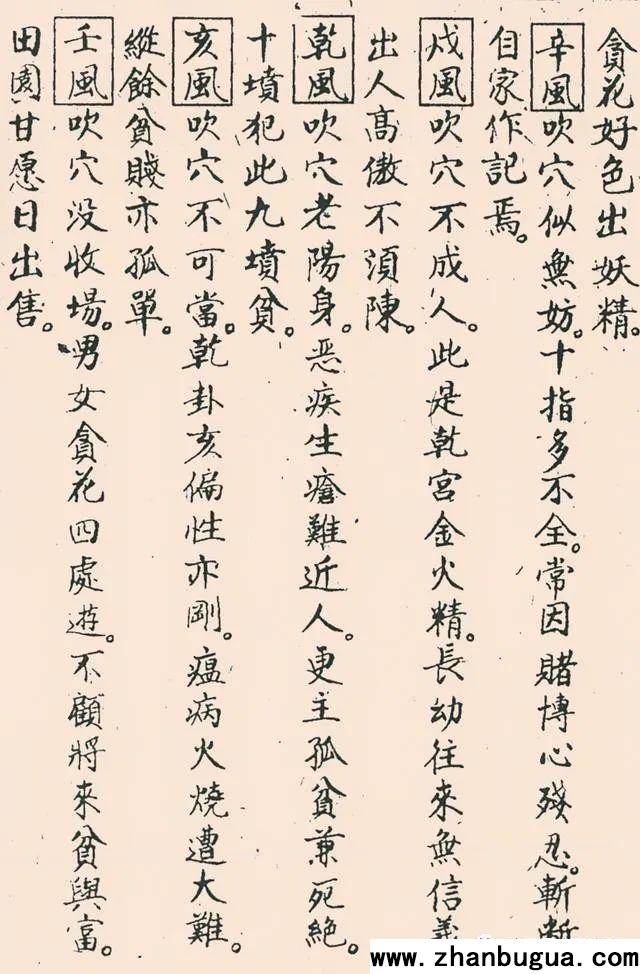 貪花好色出妖精。
辛風吹穴似無妨。十指多不全。常因賭博心殘忍。斬断
自家作記焉。
戍風吹穴不成人。此是乾宮金火精。長幼往來無信義
出人高傲不須陳。
乾風吹穴老陽身。恶疾生瘡難近人。更主孤貧兼死絕。
十墳犯此九墳貧。
亥風吹穴不可當。乾卦亥偏性亦剛。瘟病火燒遭大難。
縱餘貧賤亦孤單。
壬風吹穴没收場。男女貪花四處遊。不顧將來貧與富。
田園甘愿日出售。
www.zhanbugua.com